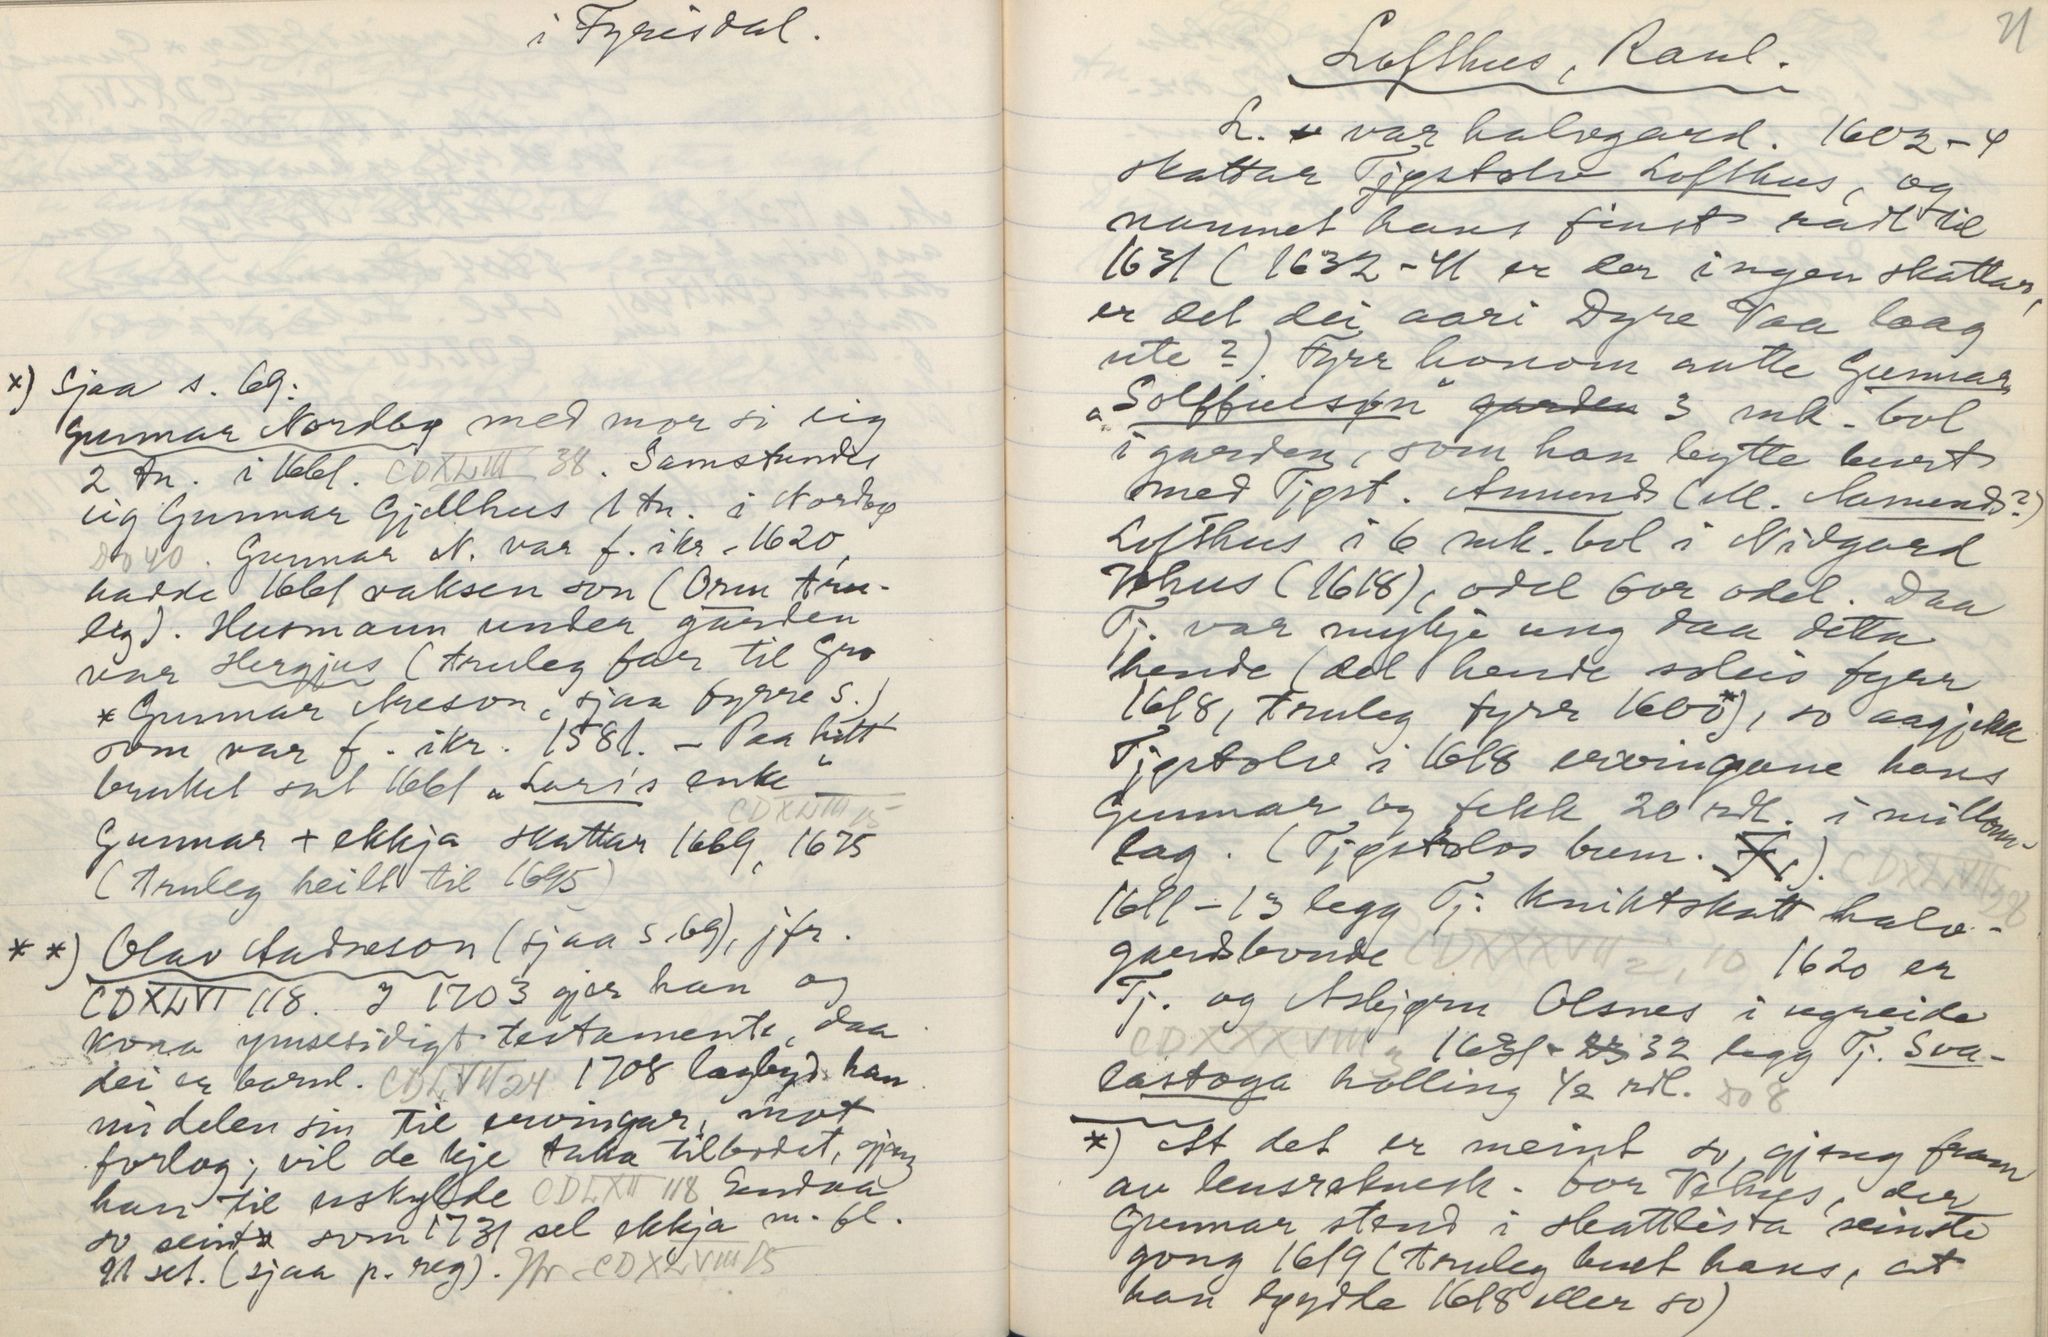 i Fyrisdal.
*) Sjaa s. 69.
Gunnar Nordbø med mor si eig
2 tn. i 1661. CDXLIII 38. Samstundes
eig Gunnar Gjellhus 1 tn. i Nordbø
do 40. Gunnar N. var f. ikr. 1620,
hadde 1661 vaksen son (Orm tru-
leg). Husmann under garden
var Hergjus (truleg far til Gro
* Gunnar Areson, sjaa fyrre s.),
som var f. ikr. 1581. – Paa hitt
bruket sat 1661 „Laris enke“
CDXLIII 15
Gunnar + ekkja skattar 1669, 1675
(truleg heilt til 1695)
**) Olav Aadneson (sjaa s. 69), jfr.
CDXLVI 118. I 1703 gjer han og
kona ymsesidigt testamente, daa
dei er barnl. CDLVII 24 1708 lagbyd han
midelen sin til ervingar, mot
forlog; vil de kje taka tilbodet, gjeng
han til uskylde CDLXII 118 Endaa
so seint som 1731 sel ekkja m. fl.
91 set. (sjaa p. reg). Jfr. CDXLVIII 15
71
Lofthus, Raul.
L. var halvgard. 1602-4
skattar Tjøstolv Lofthus, og
namnet hans finst radt til
1631 (1632-41 er der ingen skattar,
er det dei aari Dyre Vaa laag
ute?) Fyrr honom aatte Gunnar
„Solffuesøn“ garden 3 mk. bol
i garden, som han bytte burt
med Tjøst. Amunds (M. Aamunds?)
Lofthus i 6 mk. bol i Nidgard
Vehus (1618), odel for odel. Daa
Tj. var mykje ung daa detta
hende (det hende soleis fyrr
1618, truleg fyrr 1600*), so aagjekk
Tjøstolv i 1618 ervingane hans
Gunnar og fekk 20 rdl. i millom-
lag. (Tjøstolvs bum. ).
CDXLVII 28
1611-13 legg Tj. kniktskatt halv-
gardsbonde CDXXXVII 2, 10 1620 er
Tj. og Asbjørn Olsnes i ugreide
CDXXXVIII 3 1631-23 32 legg Tj. Sva-
lastoga holling 1/2 rdl. do 8
*) At det er meint so, gjeng fram
av lensreknesk. for Vehus, der
Gunnar stend i skattlista seinste
gong 1619 (truleg buet hans, at
han døydde 1618 eller so)